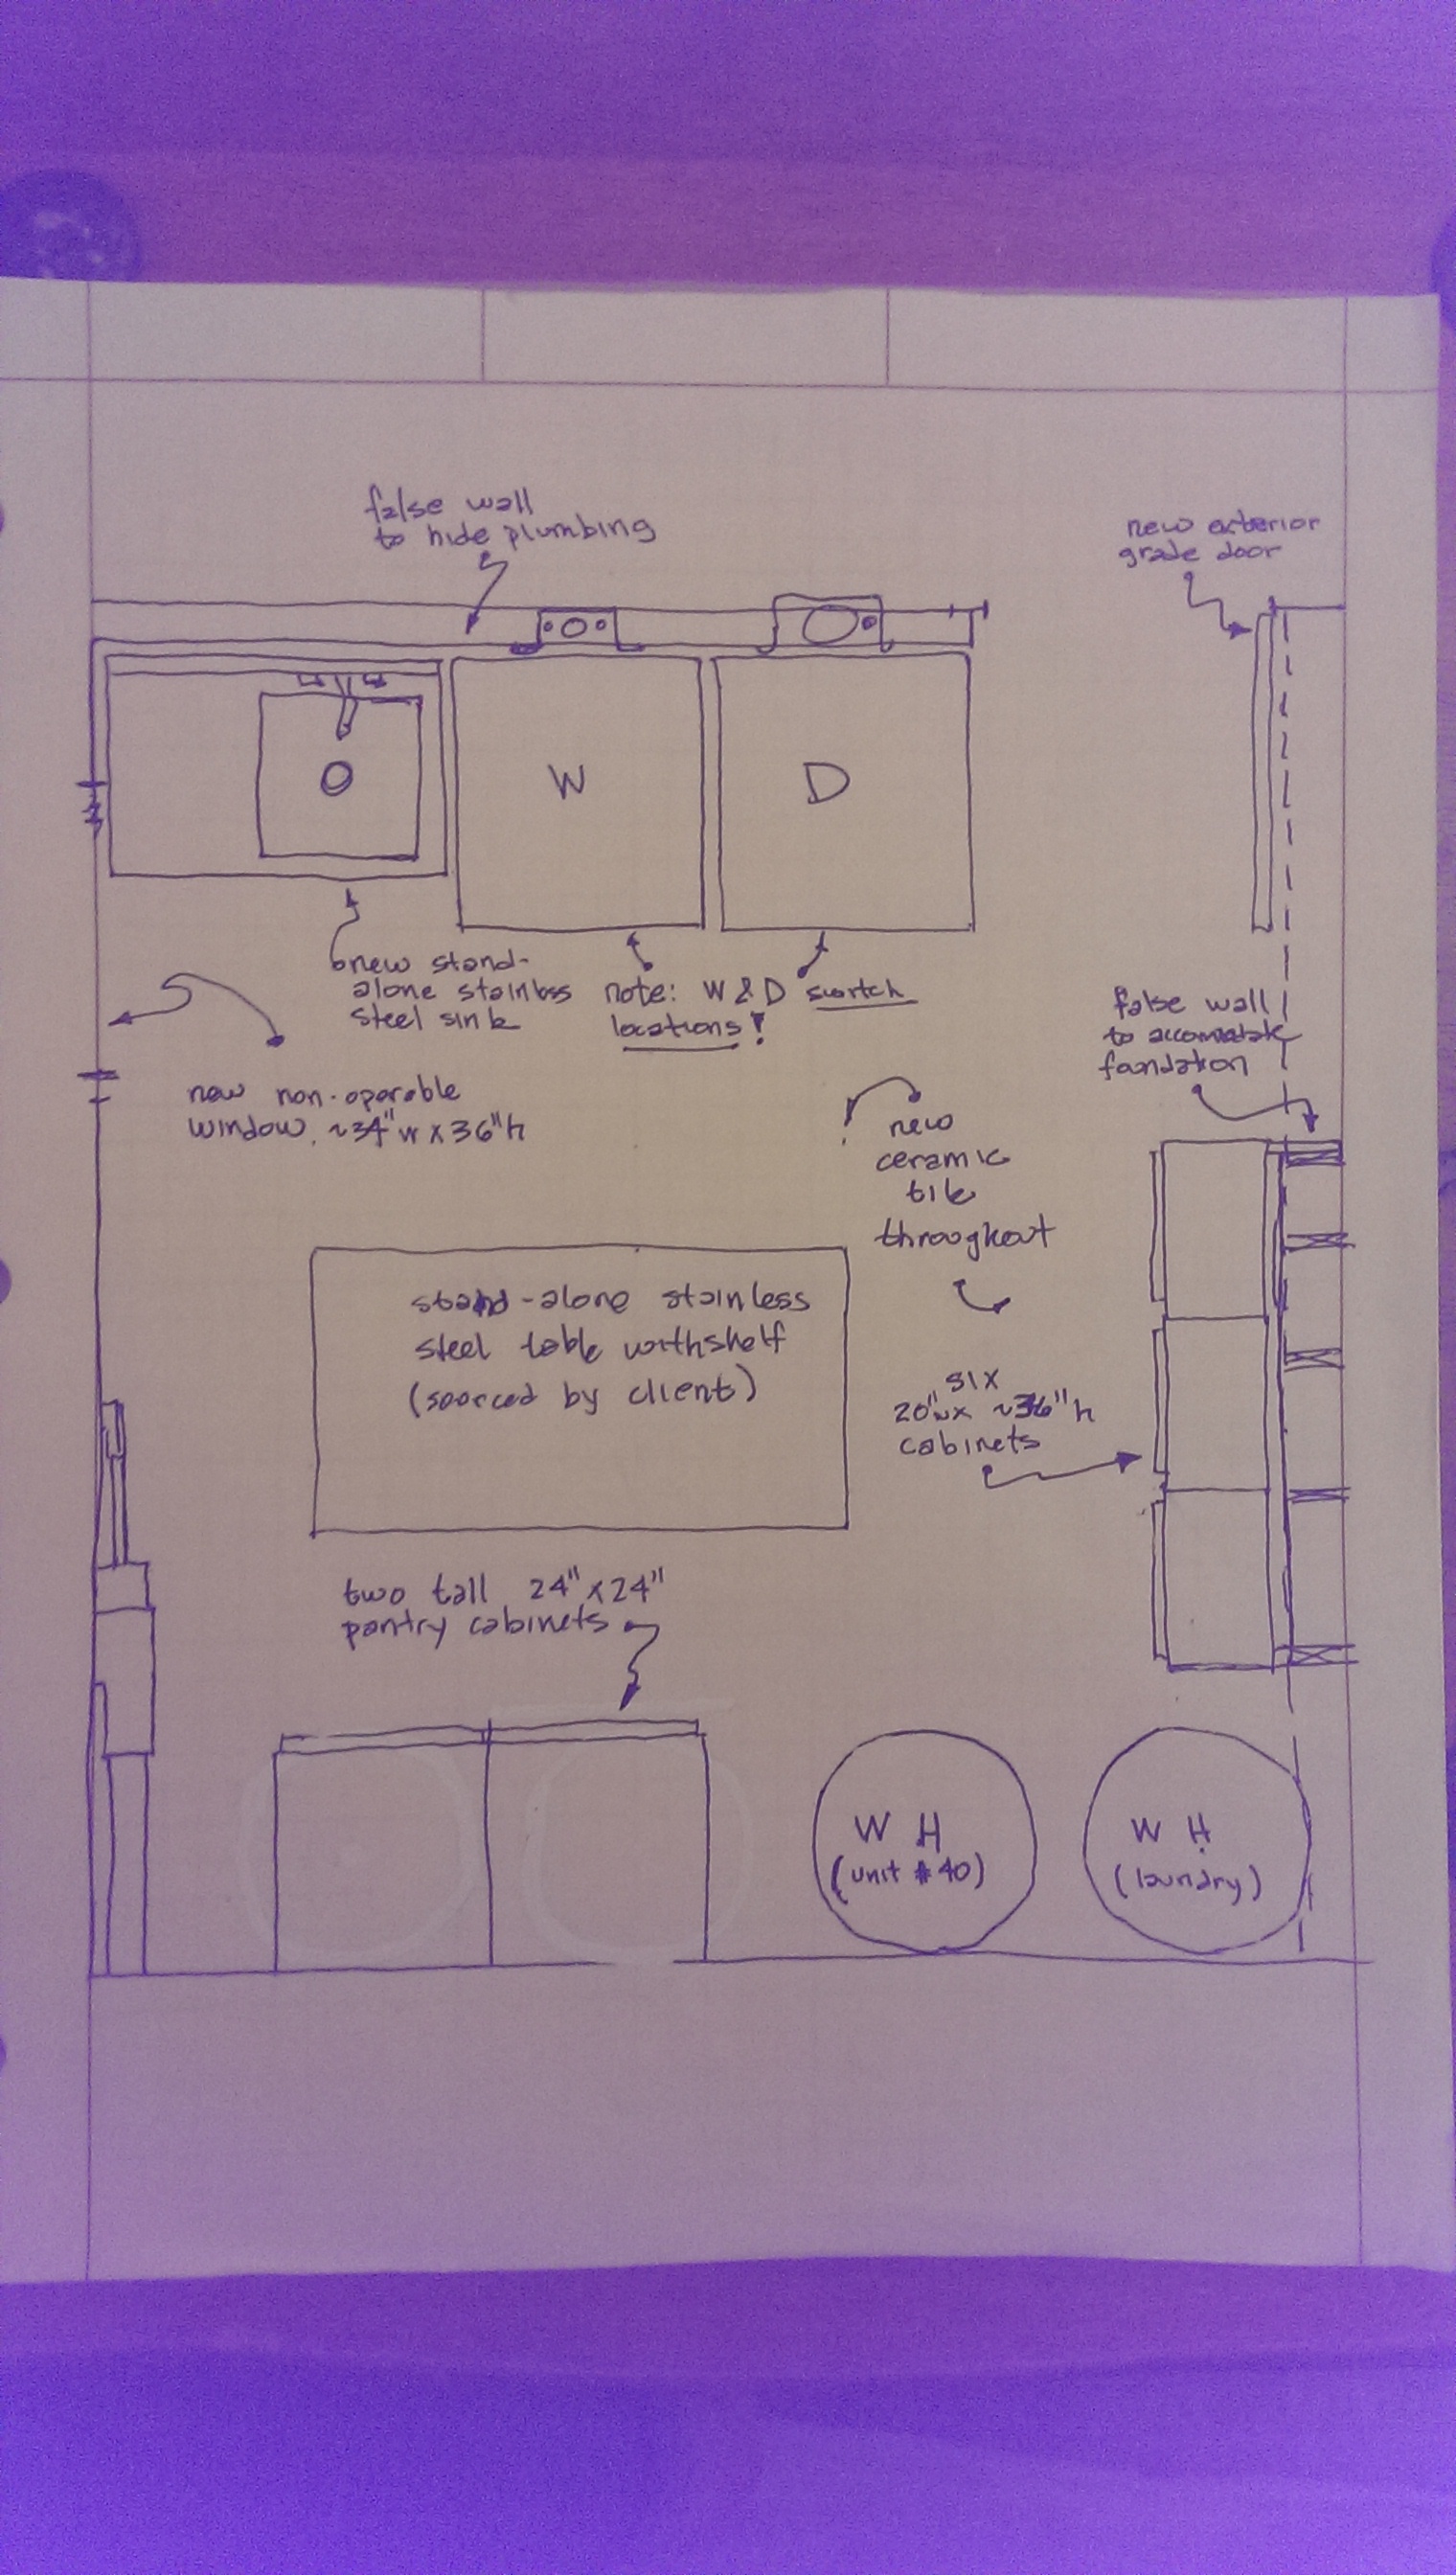 false wall
to hide plumbing
new exterior
grade door
W
D
new stand-
alone stainless
steel sink
note: W & D switch
locations!
false wall
to accomodate
foundation
new non-operable
window. ~34"w x 36"h
new
ceramic
tile
throughout
stand-alone stainless
steel table with shelf
(sourced by client)
six
20"w x ~36"h
cabinets
two tall 24" x 24"
pantry cabinets
W H
(unit #40)
W H
(laundry)